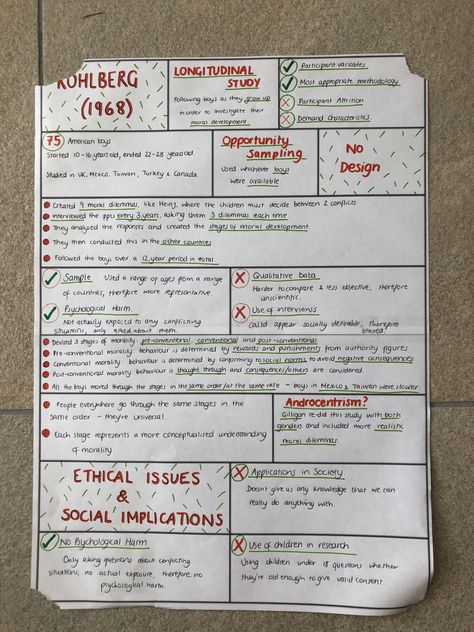 KOHLBERG
(1968)
LONGITUDINAL
STUDY
Following boys as they grow up
in order to investigate their
moral development.
Participant variables
Most appropriate methodology
Participant Attrition
Demand Characteristics
75 American boys
Started 10-16 years old, ended 22-28 years old.
Studied in UK, Mexico, Taiwan, Turkey & Canada
Opportunity
Sampling
Used whichever boys
were available
No
Design
Created 9 moral dilemmas, like Heinz, where the children must decide between 2 conflicts
Interviewed the ppts every 3 years, asking them 3 dilemmas each time.
They analysed the responses and created the stages of moral development.
They then conducted this in the other countries
Followed the boys over a 12 year period in total
Sample Used a range of ages from a range
of countries, therefore more representative.
Psychological Harm
Not actually exposed to any conflicting
situations, only asked about them.
Qualitative Data
Harder to compare & less objective, therefore
unscientific.
Use of interviews
Could appear socially desirable, therefore
biased.
Devised 3 stages of morality: pre-conventional, conventional and post-conventional
Pre-conventional morality behaviour is determined by rewards and punishments from authority figures
Conventional morality behaviour is determined by conforming to social norms to avoid negative consequences
Post-conventional morality behaviour is thought through and consequences/others are considered.
All the boys moved through the stages in the same order/at the same rate - boys in Mexico & Taiwan were slower.
People everywhere go through the same stages in the
same order - they're universal.
Each stage represents a more conceptualised understanding
of morality
Androcentrism?
Gilligan re-did this study with both
genders and included more realistic
moral dilemmas.
ETHICAL ISSUES
&
SOCIAL IMPLICATIONS
Applications in Society
Doesn't give us any knowledge that we can
really do anything with.
No Psychological Harm
Only asking questions about conflicting
situations, no actual exposure, therefore no
psychological harm.
Use of children in research
Using children under 18 questions whether
they're old enough to give valid consent.